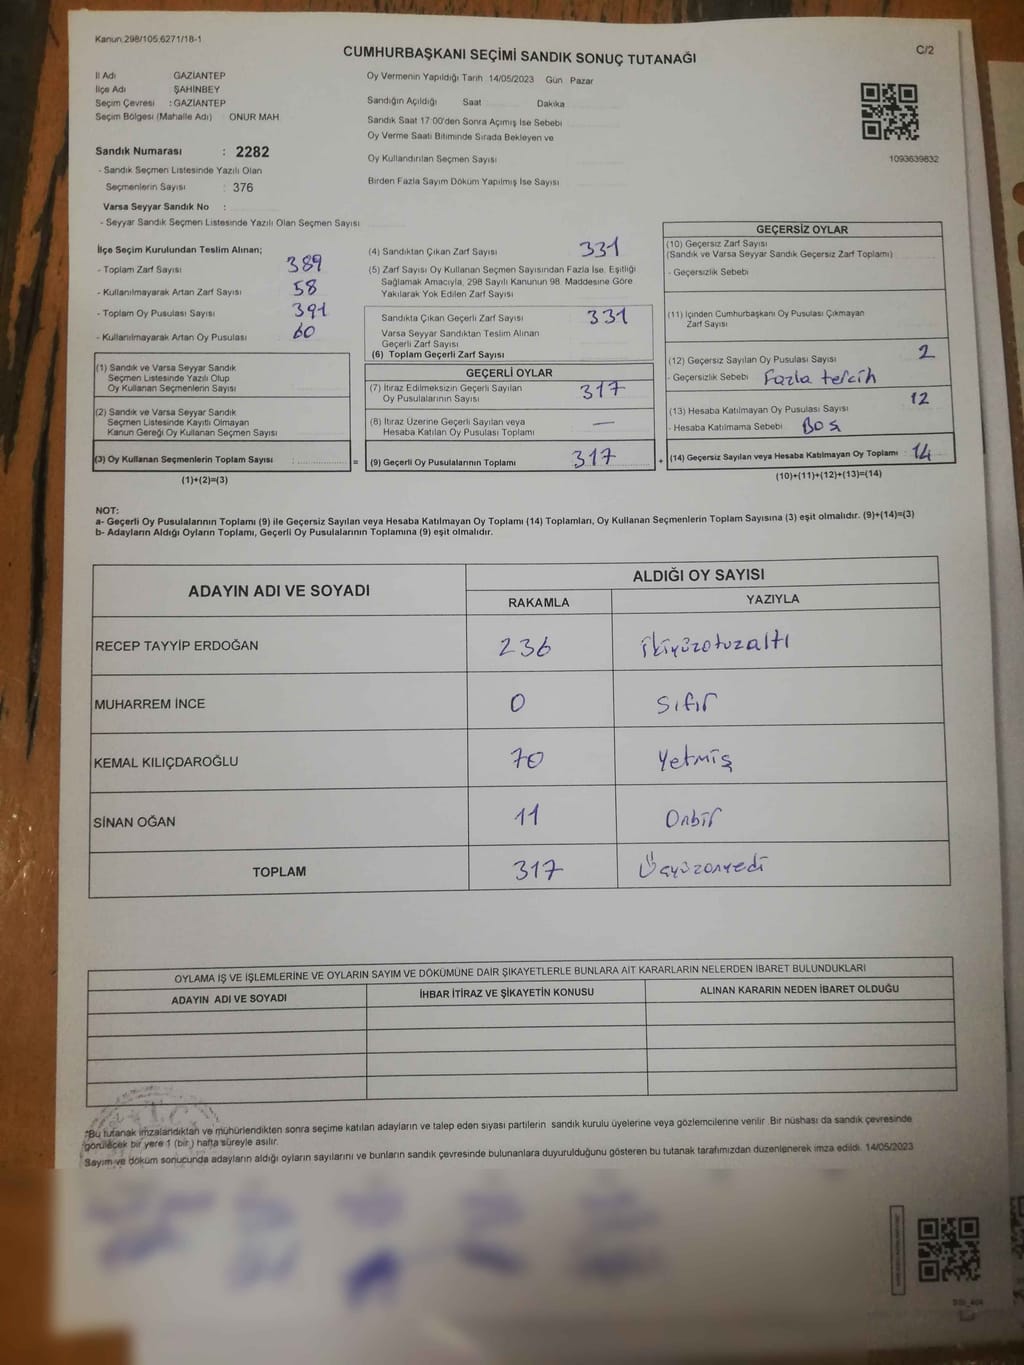 Kanun:298/105,6271/18-1
C/2
CUMHURBAŞKANI SEÇİMİ SANDIK SONUÇ TUTANAĞI
İl Adı GAZİANTEP
İlçe Adı ŞAHİNBEY
Seçim Çevresi : GAZİANTEP
Seçim Bölgesi (Mahalle Adı) ONUR MAH
Sandık Numarası : 2282
- Sandık Seçmen Listesinde Yazılı Olan
Seçmenlerin Sayısı : 376
Varsa Seyyar Sandık No :
- Seyyar Sandık Seçmen Listesinde Yazılı Olan Seçmen Sayısı
Oy Vermenin Yapıldığı Tarih 14/05/2023 Gün Pazar
Sandığın Açıldığı Saat Dakika
Sandık Saat 17:00'den Sonra Açımış İse Sebebi
Oy Verme Saati Bitiminde Sırada Bekleyen ve
Oy Kullandırılan Seçmen Sayısı
Birden Fazla Sayım Döküm Yapılmış İse Sayısı
1093639832
İlçe Seçim Kurulundan Teslim Alınan;
- Toplam Zarf Sayısı 389
- Kullanılmayarak Artan Zarf Sayısı 58
- Toplam Oy Pusulası Sayısı 391
- Kullanılmayarak Artan Oy Pusulası 60
(1) Sandık ve Varsa Seyyar Sandık
Seçmen Listesinde Yazılı Olup
Oy Kullanan Seçmenlerin Sayısı
(2) Sandık ve Varsa Seyyar Sandık
Seçmen Listesinde Kayıtlı Olmayan
Kanun Gereği Oy Kullanan Seçmen Sayısı
(3) Oy Kullanan Seçmenlerin Toplam Sayısı : =
(1)+(2)=(3)
(4) Sandıktan Çıkan Zarf Sayısı 331
(5) Zarf Sayısı Oy Kullanan Seçmen Sayısından Fazla İse, Eşitliği
Sağlamak Amacıyla, 298 Sayılı Kanunun 98. Maddesine Göre
Yakılarak Yok Edilen Zarf Sayısı
Sandıkta Çıkan Geçerli Zarf Sayısı 331
Varsa Seyyar Sandıktan Teslim Alınan
Geçerli Zarf Sayısı
(6) Toplam Geçerli Zarf Sayısı
GEÇERLİ OYLAR
(7) İtiraz Edilmeksizin Geçerli Sayılan
Oy Pusulalarının Sayısı 317
(8) İtiraz Üzerine Geçerli Sayılan veya
Hesaba Katılan Oy Pusulası Toplamı —
(9) Geçerli Oy Pusulalarının Toplamı 317 +
GEÇERSİZ OYLAR
(10) Geçersiz Zarf Sayısı
(Sandık ve Varsa Seyyar Sandık Geçersiz Zarf Toplamı)
- Geçersizlik Sebebi
(11) İçinden Cumhurbaşkanı Oy Pusulası Çıkmayan
Zarf Sayısı
(12) Geçersiz Sayılan Oy Pusulası Sayısı 2
- Geçersizlik Sebebi Fazla tercih
(13) Hesaba Katılmayan Oy Pusulası Sayısı 12
- Hesaba Katılmama Sebebi Boş
(14) Geçersiz Sayılan veya Hesaba Katılmayan Oy Toplamı : 14
(10)+(11)+(12)+(13)=(14)
NOT:
a- Geçerli Oy Pusulalarının Toplamı (9) ile Geçersiz Sayılan veya Hesaba Katılmayan Oy Toplamı (14) Toplamları, Oy Kullanan Seçmenlerin Toplam Sayısına (3) eşit olmalıdır. (9)+(14)=(3)
b- Adayların Aldığı Oyların Toplamı, Geçerli Oy Pusulalarının Toplamına (9) eşit olmalıdır.
ADAYIN ADI VE SOYADI ALDIĞI OY SAYISI
RAKAMLA YAZIYLA
RECEP TAYYİP ERDOĞAN 236 ikiyüzotuzaltı
MUHARREM İNCE 0 sıfır
KEMAL KILIÇDAROĞLU 70 Yetmiş
SİNAN OĞAN 11 Onbir
TOPLAM 317 Üçyüzonyedi
OYLAMA İŞ VE İŞLEMLERİNE VE OYLARIN SAYIM VE DÖKÜMÜNE DAİR ŞİKAYETLERLE BUNLARA AİT KARARLARIN NELERDEN İBARET BULUNDUKLARI
ADAYIN ADI VE SOYADI İHBAR İTİRAZ VE ŞİKAYETİN KONUSU ALINAN KARARIN NEDEN İBARET OLDUĞU
*Bu tutanak imzalandıktan ve mühürlendikten sonra seçime katılan adayların ve talep eden siyasi partilerin sandık kurulu üyelerine veya gözlemcilerine verilir. Bir nüshası da sandık çevresinde
görülecek bir yere 1 (bir) hafta süreyle asılır.
Sayım ve döküm sonucunda adayların aldığı oyların sayılarını ve bunların sandık çevresinde bulunanlara duyurulduğunu gösteren bu tutanak tarafımızdan düzenlenerek imza edildi. 14/05/2023